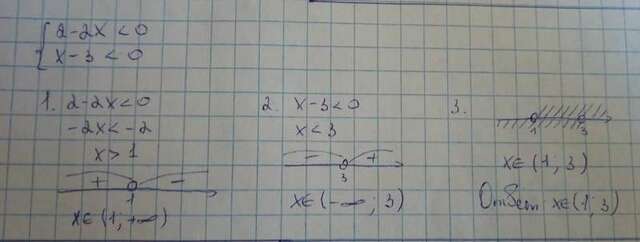 2-2x<0
x-3<0
1. 2-2x<0
-2x<-2
x>1
+ -
1
x∈(1;+∞)
2. x-3<0
x<3
- +
3
x∈(-∞;3)
3.
1 3
x∈(1;3)
Ответ: x∈(1;3)